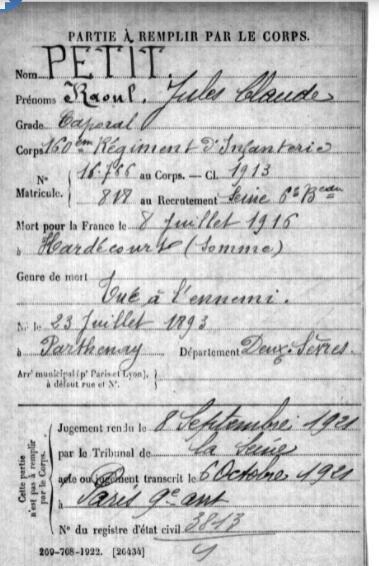 PARTIE À REMPLIR PAR LE CORPS.
Nom PETIT.
Prénoms Raoul. Jules Claude
Grade Caporal
Corps 160em Régiment d'Infanterie
N° Matricule. { 16.766 au Corps. — Cl. 1913
818 au Recrutement Seine 6e Beau
Mort pour la France le 8 Juillet 1916
à Hardécourt (Somme)
Genre de mort
Tué à l'ennemi.
Né le 23 Juillet 1893
à Parthenay Département Deux-Sèvres.
Arrt municipal (pr Paris et Lyon), à défaut rue et N°. }
Cette partie n'est pas à remplir par le Corps.
Jugement rendu le 8 Septembre 1921
par le Tribunal de la Seine
acte ou jugement transcrit le 6 Octobre 1921
à Paris 9e arrt
N° du registre d'état civil 3813
269-708-1922. [26434]